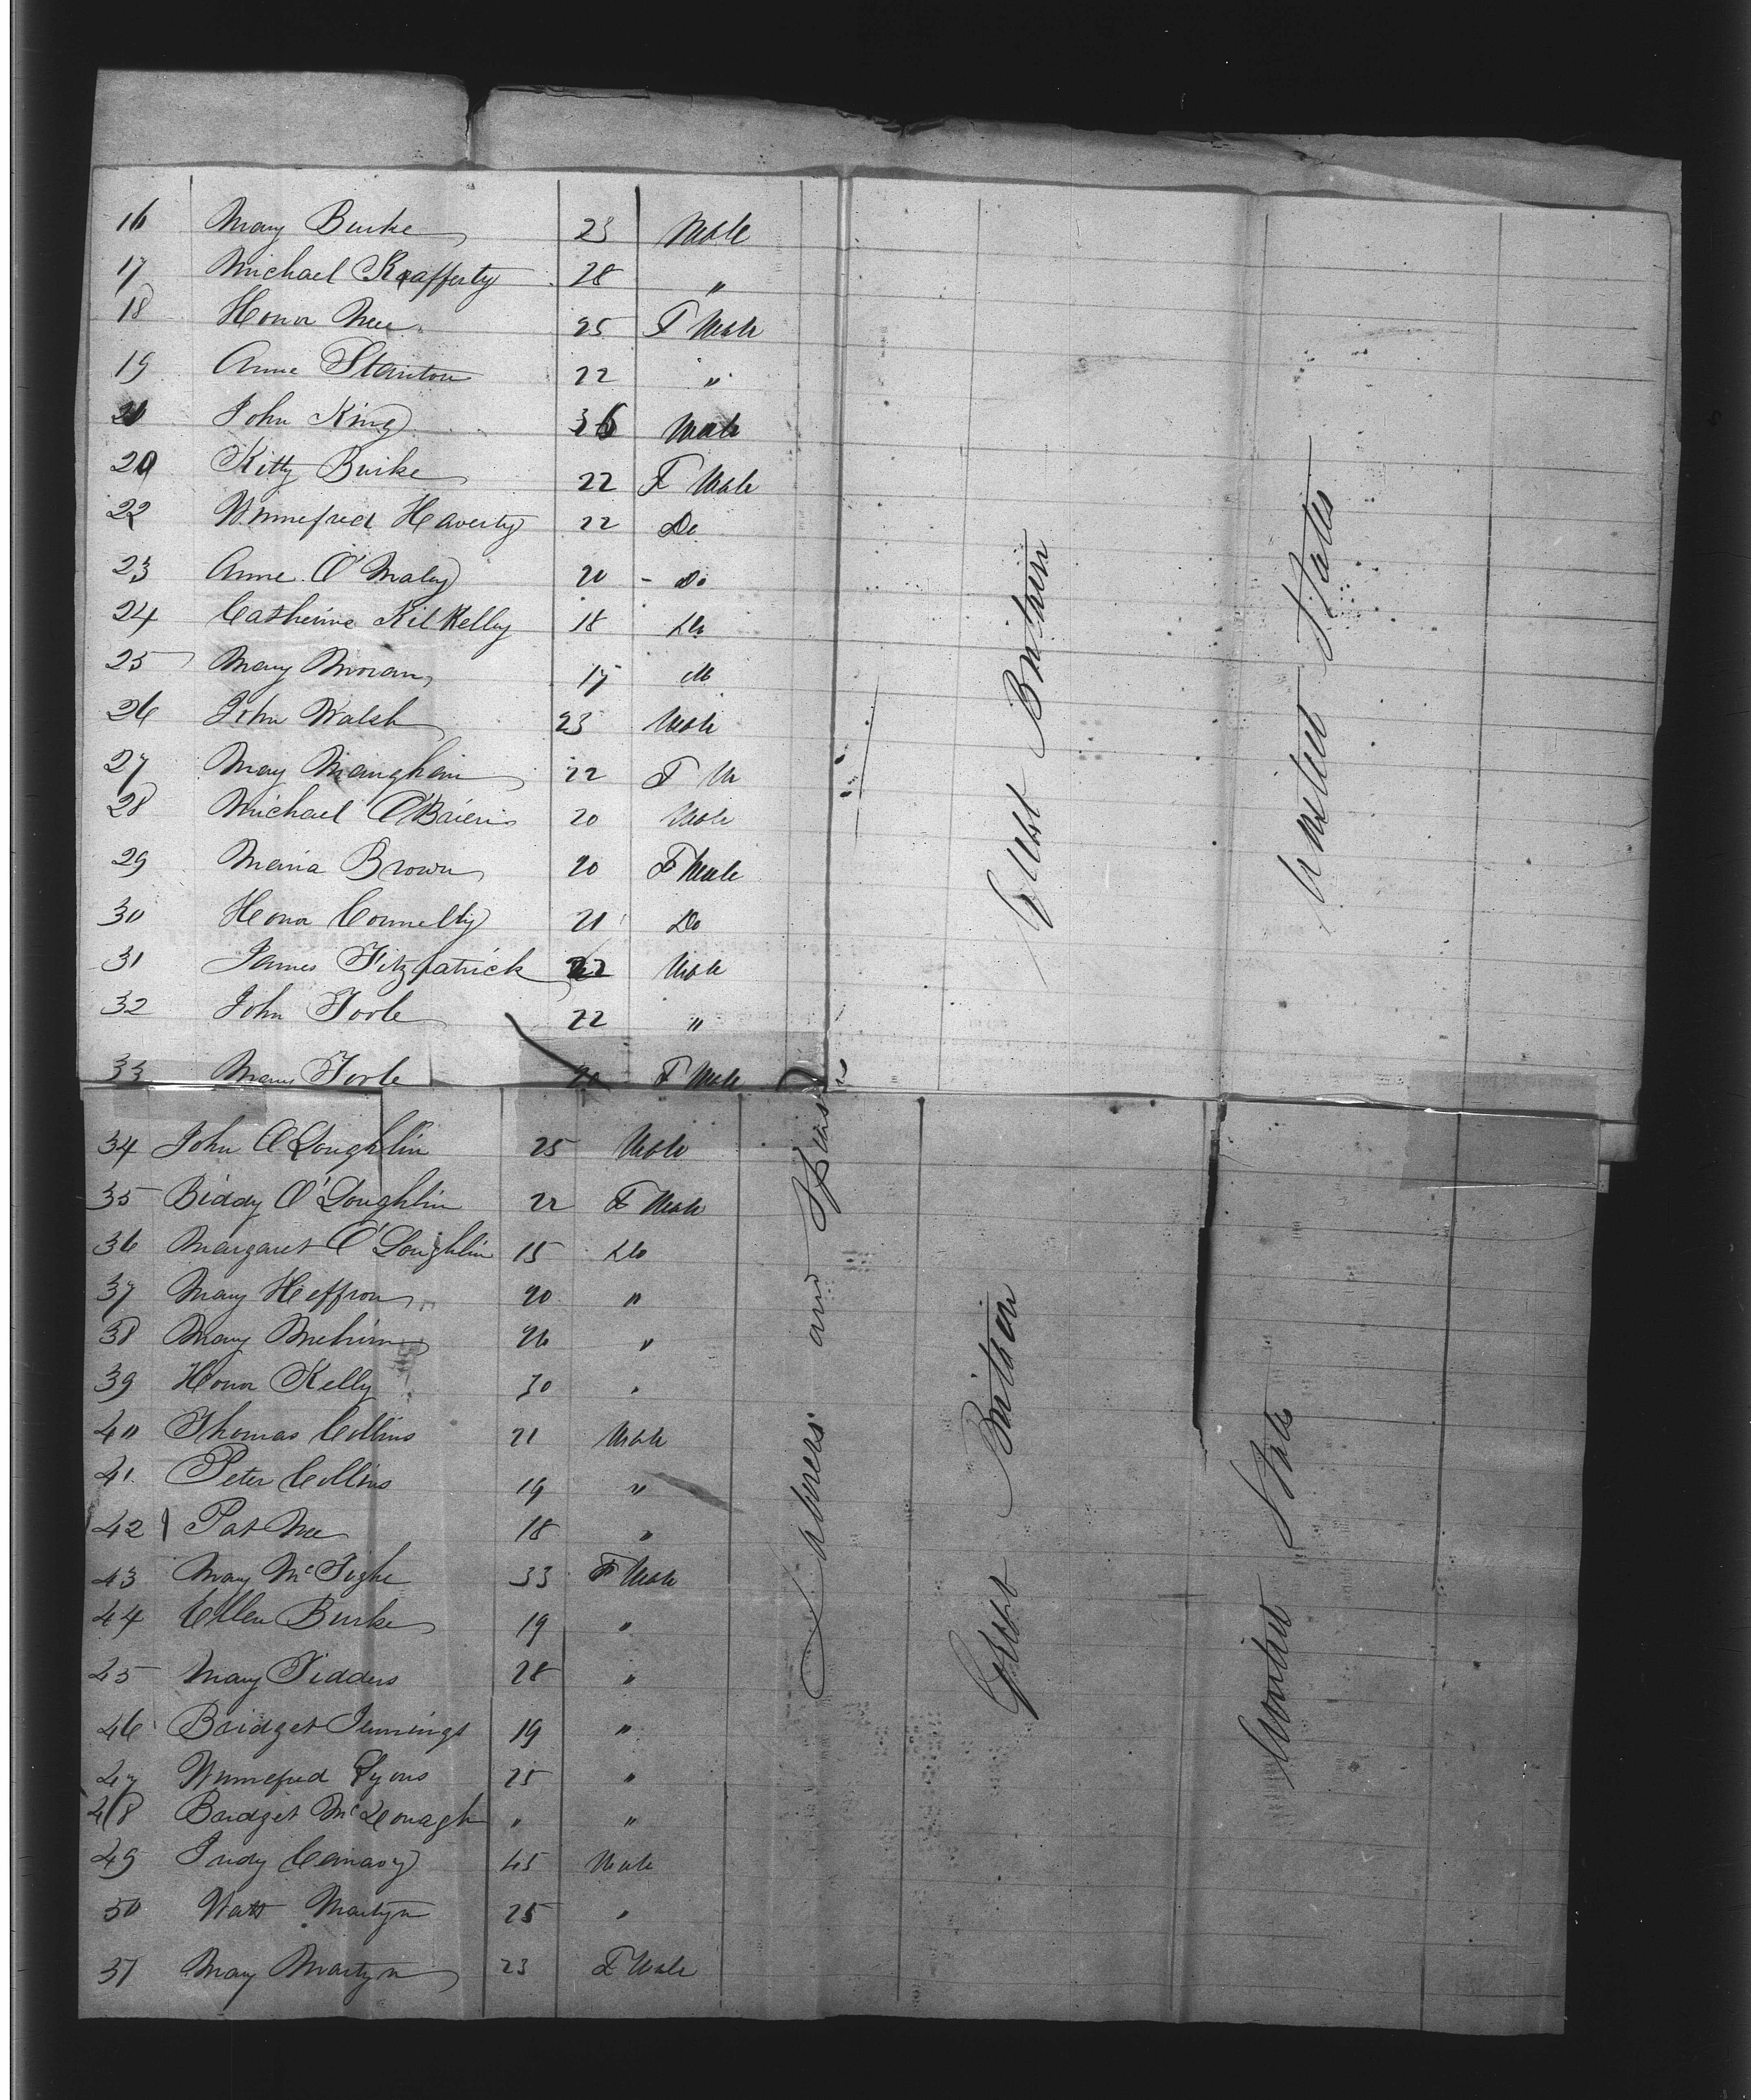 16 Mary Burke 23 Male
17 Michael Rafferty 28 "
18 Honor Nee 25 F Male
19 Anne Stanton 22 "
20 John King 36 Male
20 Kitty Burke 22 F Male
22 Winnefred Haverty 22 Do
23 Anne O'Maley 20 - Do
24 Catherine Kilkelly 18 Do
25 Mary Moran 17 Do
26 John Walsh 23 Male
27 Mary Manghan 22 F M
28 Michael O'Brien 20 Male
29 Maria Brown 20 F Male
30 Honor Connelly 21 Do
31 James Fitzpatrick 22 Male
32 John Toole 22 "
33 Mary Toole 20 F Male
34 John O'Loughlin 25 Male
35 Biddy O'Loughlin 22 F Male
36 Margaret O'Loughlin 15 Do
37 Mary Heffron 20 "
38 Mary 26 "
39 Honor Kelly 30 "
40 Thomas Collins 21 Male
41 Peter Collins 19 "
42 Pat Nee 18 "
43 Mary McTighe 33 F Male
44 Ellen Burke 19 "
45 Mary Tidders 28 "
46 Bridget Jennings 19 "
47 Winnefred Lyons 25 "
48 Bridget McDonagh " "
49 Judy 45 Male
50 Watt Martyn 25 "
51 Mary Martyn 23 F Male
Great Britain
United States
Laborers and
Great Britain
United States